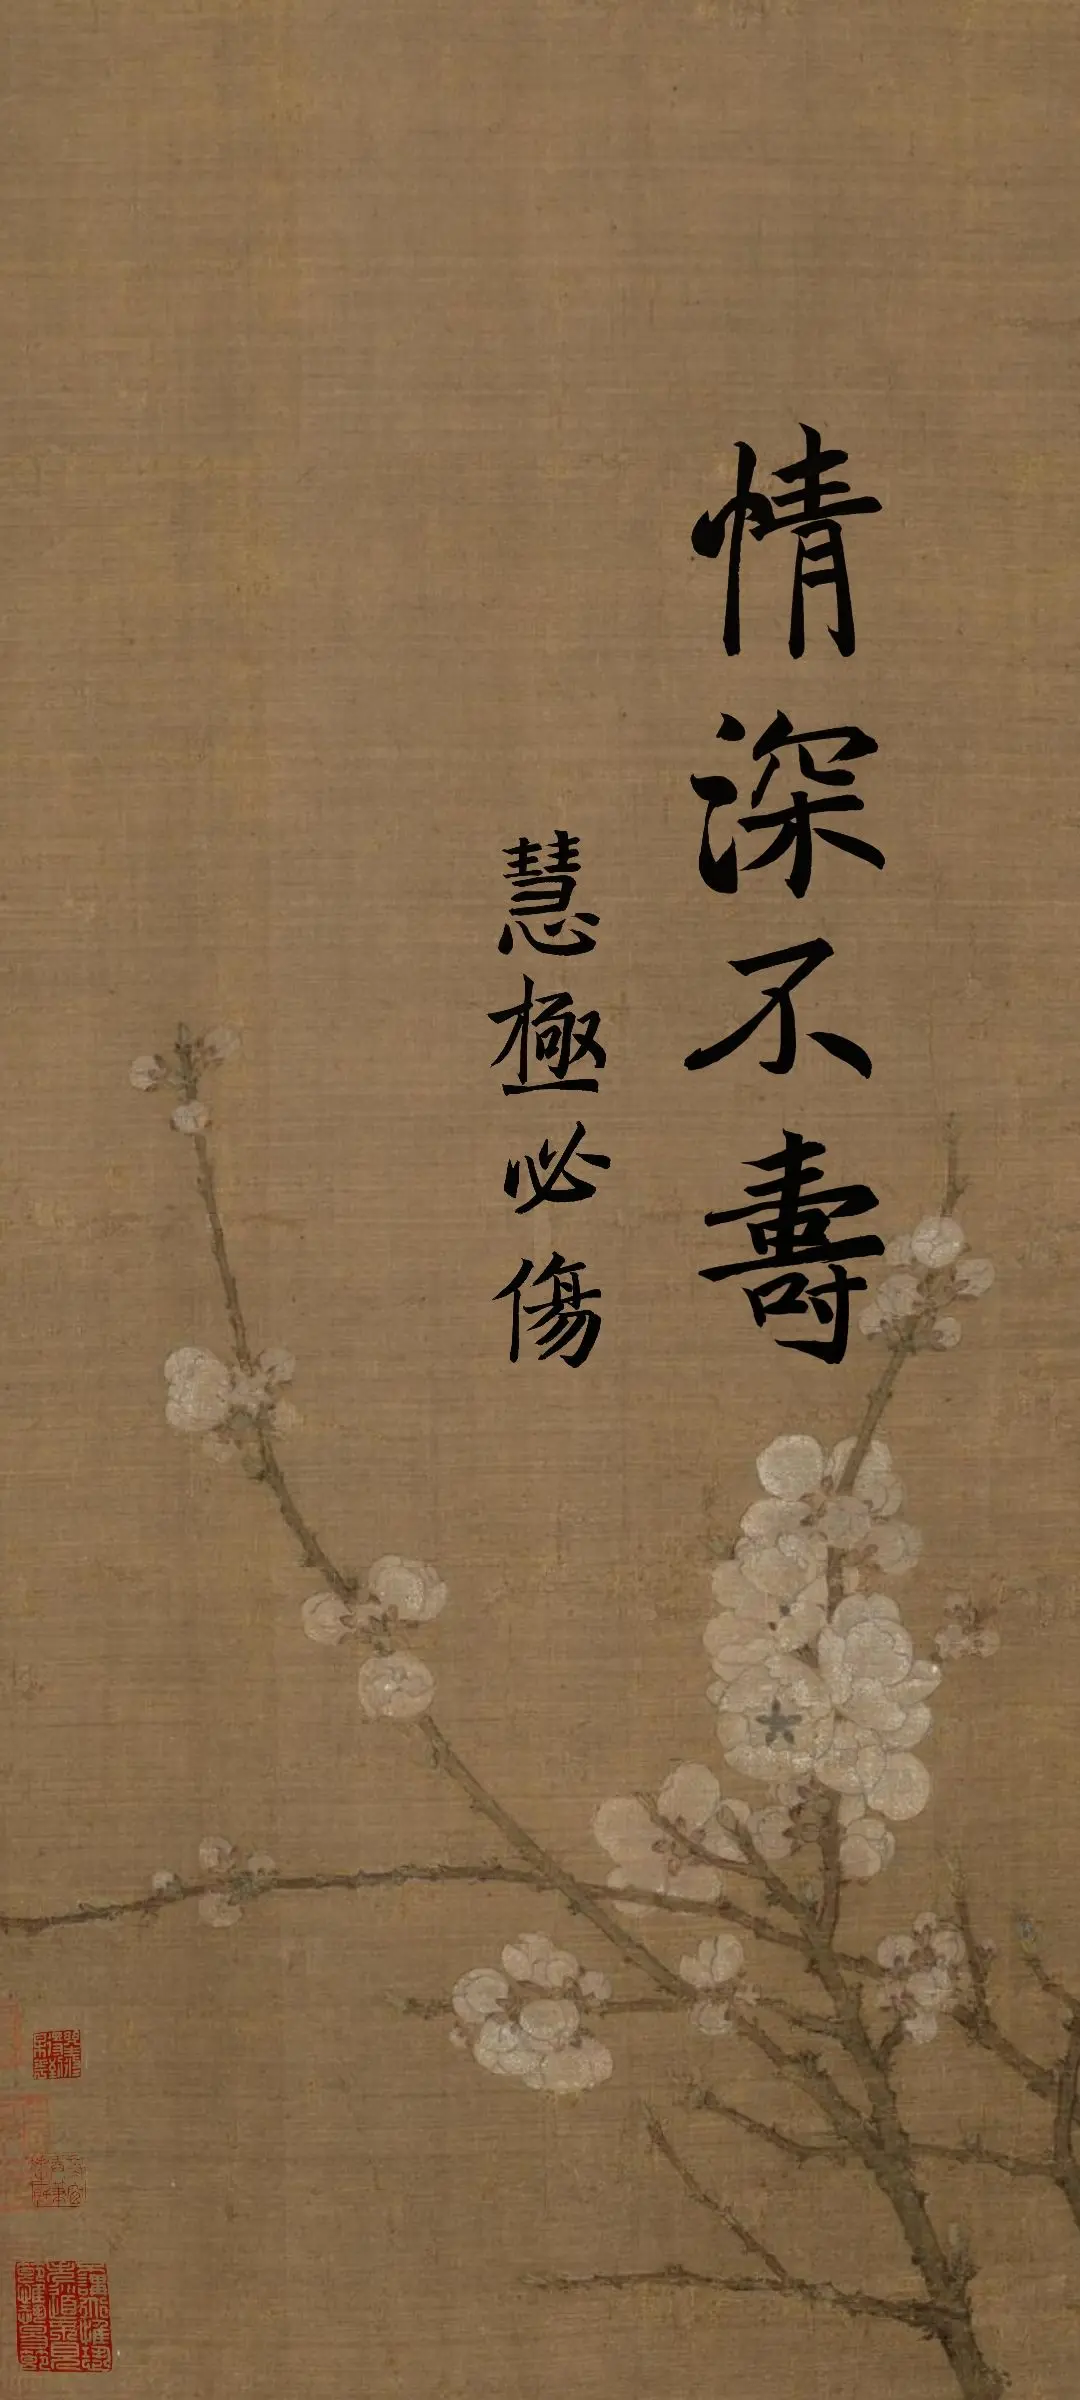 情深不壽
慧極必傷